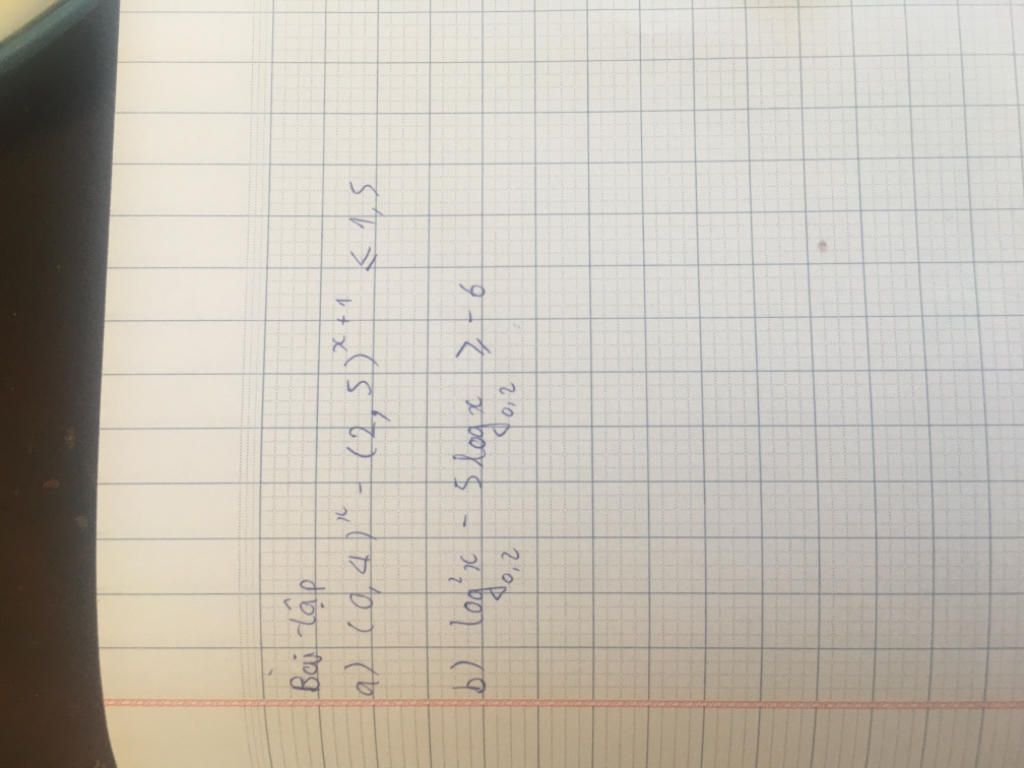 Bài tập
a) (0,4)ˣ - (2,5)ˣ⁺¹ ⩽ 1,5
b) log²₀,₂ x - 5 log₀,₂ x ⩾ -6